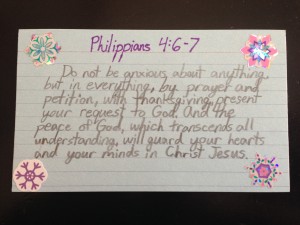 Philippians 4:6-7
Do not be anxious about anything,
but in everything, by prayer and
petition, with thanksgiving, present
your request to God. And the
peace of God, which transcends all
understanding, will guard your hearts
and your minds in Christ Jesus.